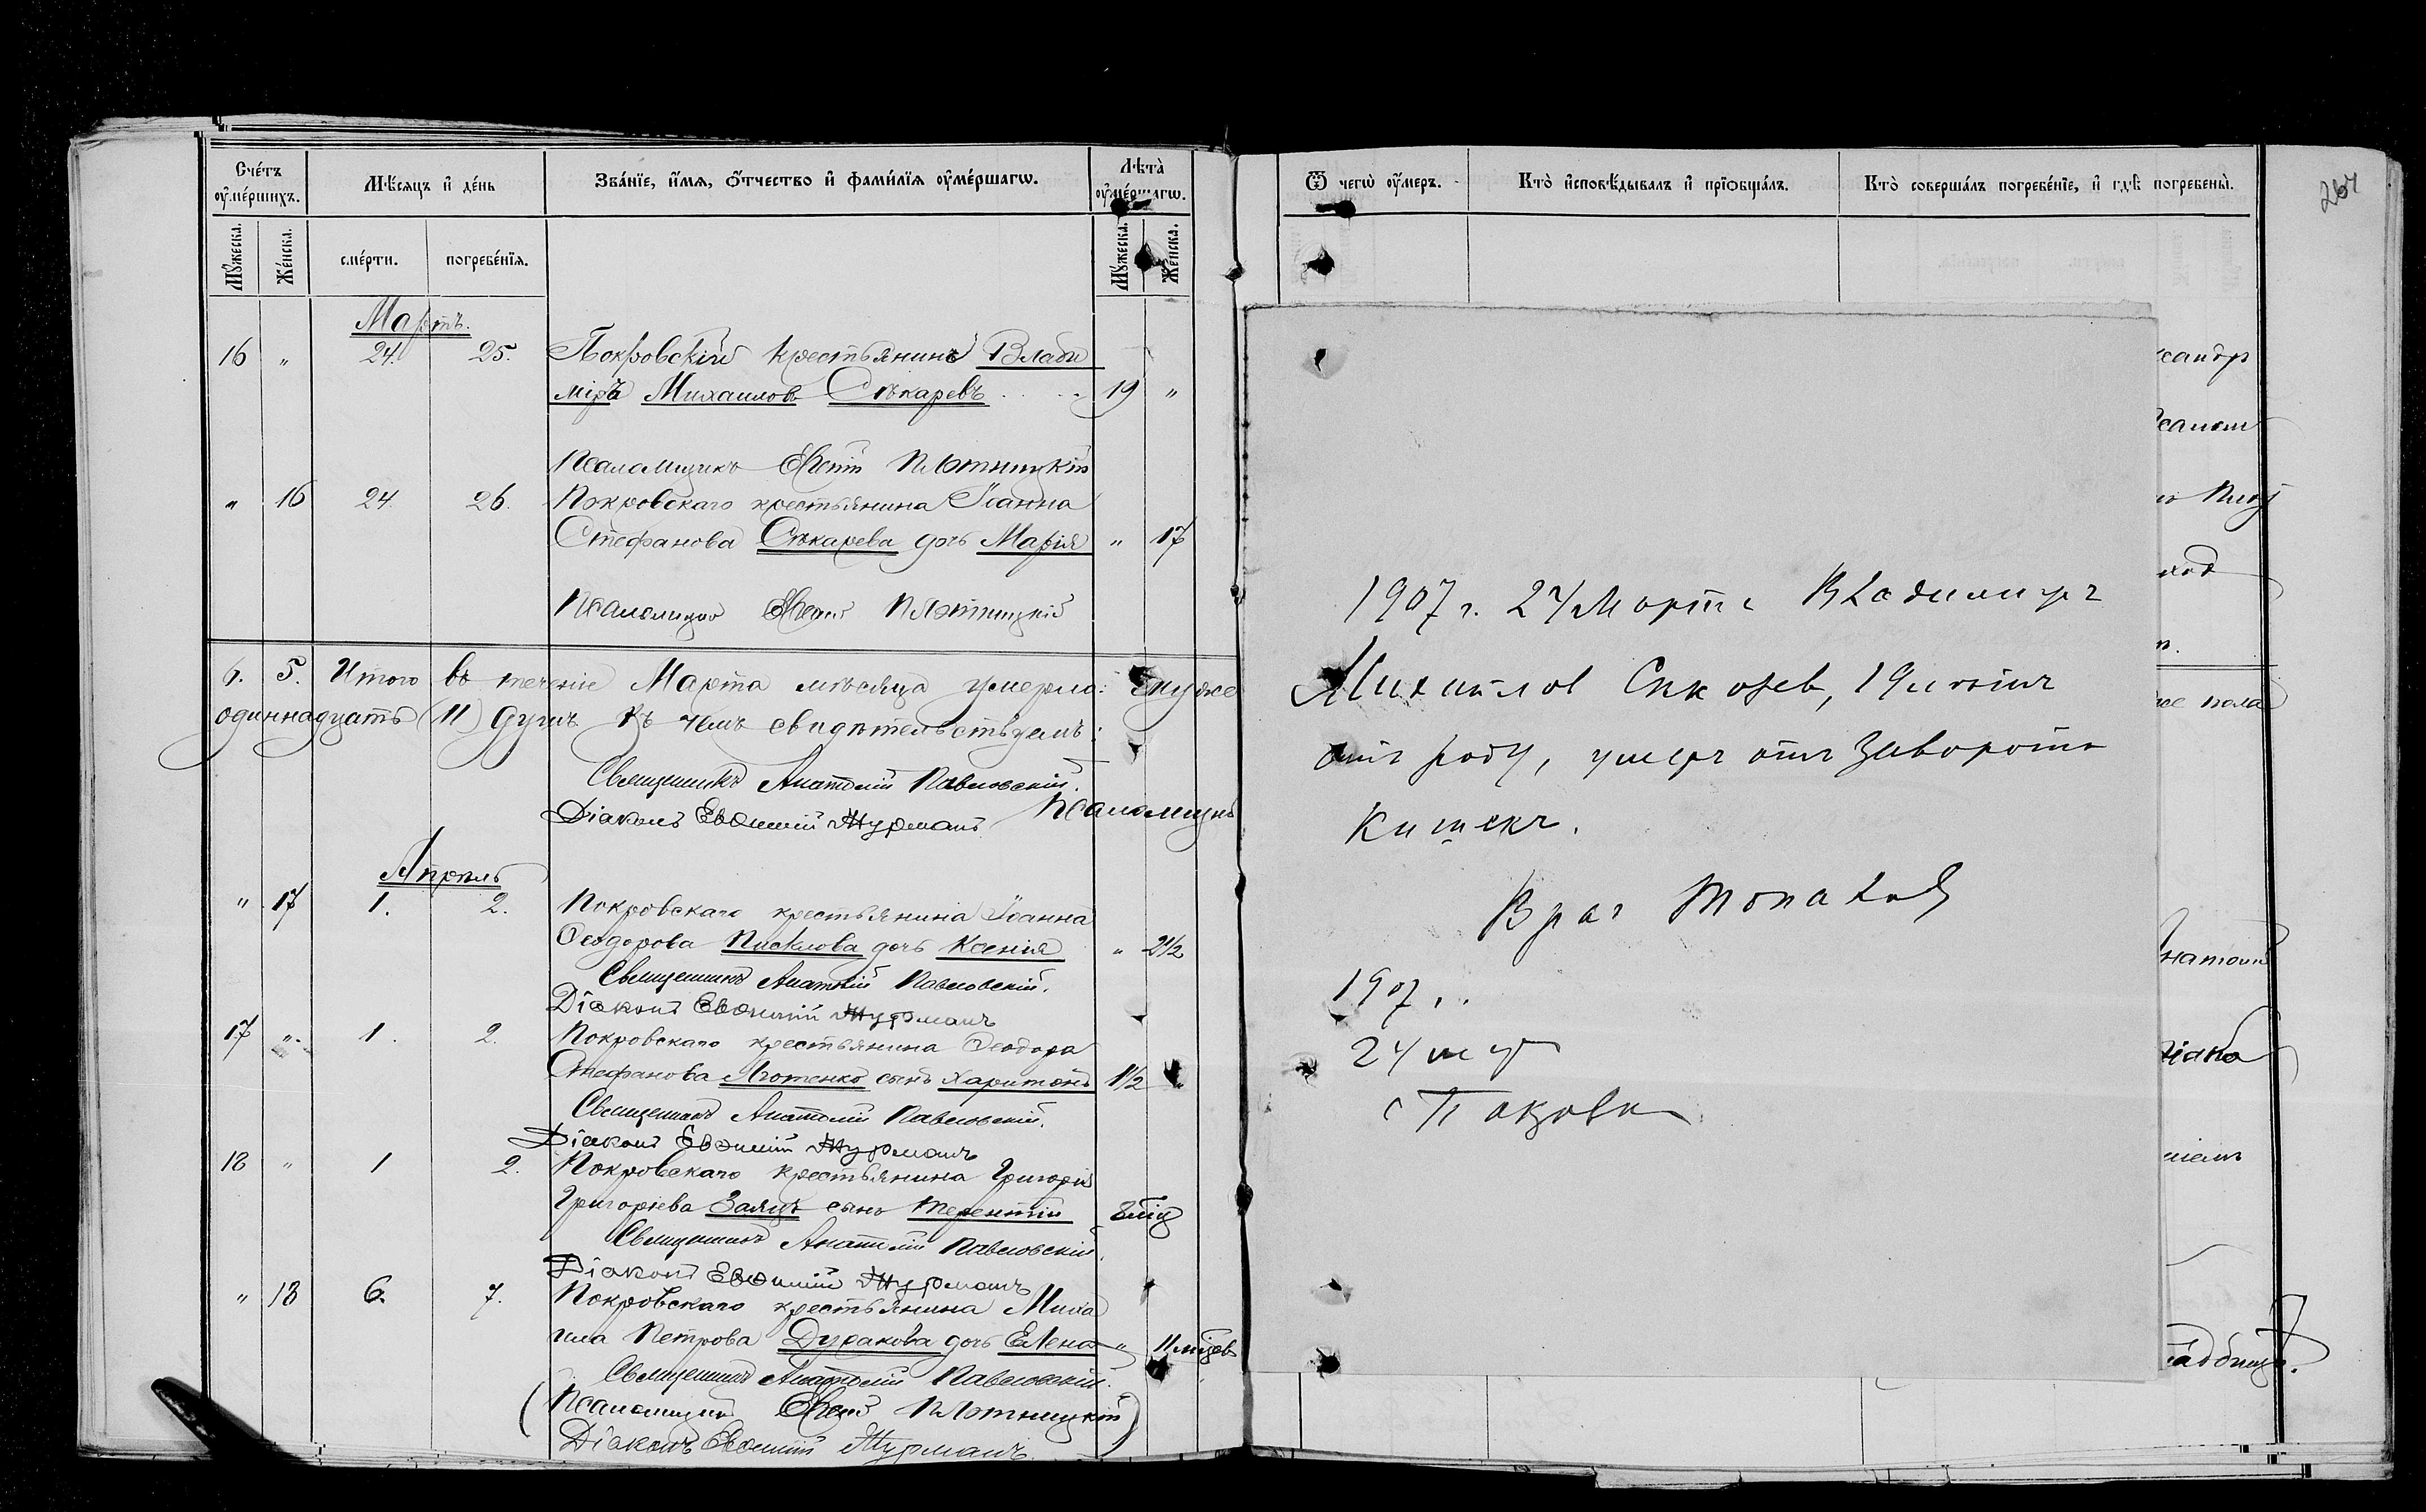 Счéтъ оу҆мéршихъ.
Мѣ́сяцъ и҆ дéнь
Звáнїе, и҆́мя, ѻ҆́тчество и҆ фамѝлїя оу҆мéршагѡ.
Лѣ́та оу҆мéршагѡ.
Мꙋ́жеска.
Же́нска.
смéрти.
погребéнїя.
Мꙋ́жеска.
Же́нска.
Мартъ.
16 „ 24. 25. Покровскій крестьянинъ Влади
міръ Михаиловъ Сѣкаревъ 19 „
Псаломщикъ Плотницкій
„ 16 24 26. Покровскаго крестьянина Іоанна
Стефанова Сѣкарева дочь Марія „ 17
Псаломщикъ Плотницкій
6. 5. Итого въ теченіе Марта мѣсяца умерло:
одиннадцать (11) душъ въ чемъ свидѣтельствуемъ:
Священникъ Анатолій Павловскій.
Діаконъ Евѳимій Журманъ. Псаломщикъ
Апрѣль
„ 17 1. 2. Покровскаго крестьянина Іоанна
Ѳеодорова дочь Ксенія „ 2 1/2
Священникъ Анатолій Павловскій.
Діаконъ Евѳимій Журманъ
17 „ 1. 2. Покровскаго крестьянина Ѳеодора
Стефанова сынъ Харитонъ 1 1/2 „
Священникъ Анатолій Павловскій.
Діаконъ Евѳимій Журманъ
18 „ 1 2. Покровскаго крестьянина Григорія
Григорьева Заяцъ сынъ Терентій
Священникъ Анатолій Павловскій.
Діаконъ Евѳимій Журманъ
„ 18 6. 7. Покровскаго крестьянина Миха
ила Петрова Дуракова дочь Елена „ 11 мѣсяцевъ
Священникъ Анатолій Павловскій.
(Псаломщикъ Плотницкій)
Діаконъ Евѳимій Журманъ
Ѿ чегѡ̀ оу҆́меръ.
Ктò и҆сповѣ́дывалъ и҆ прїѡбщáлъ.
Ктò совершáлъ погребéнїе, и҆ гдѣ̀ погребены̀.
264
1907 г. 24 Марта Владимиръ
Михаилов Секарев, 19 лѣтъ
отъ роду, умеръ отъ заворота
кишекъ.
Врач
1907 г.
24
с Покровка